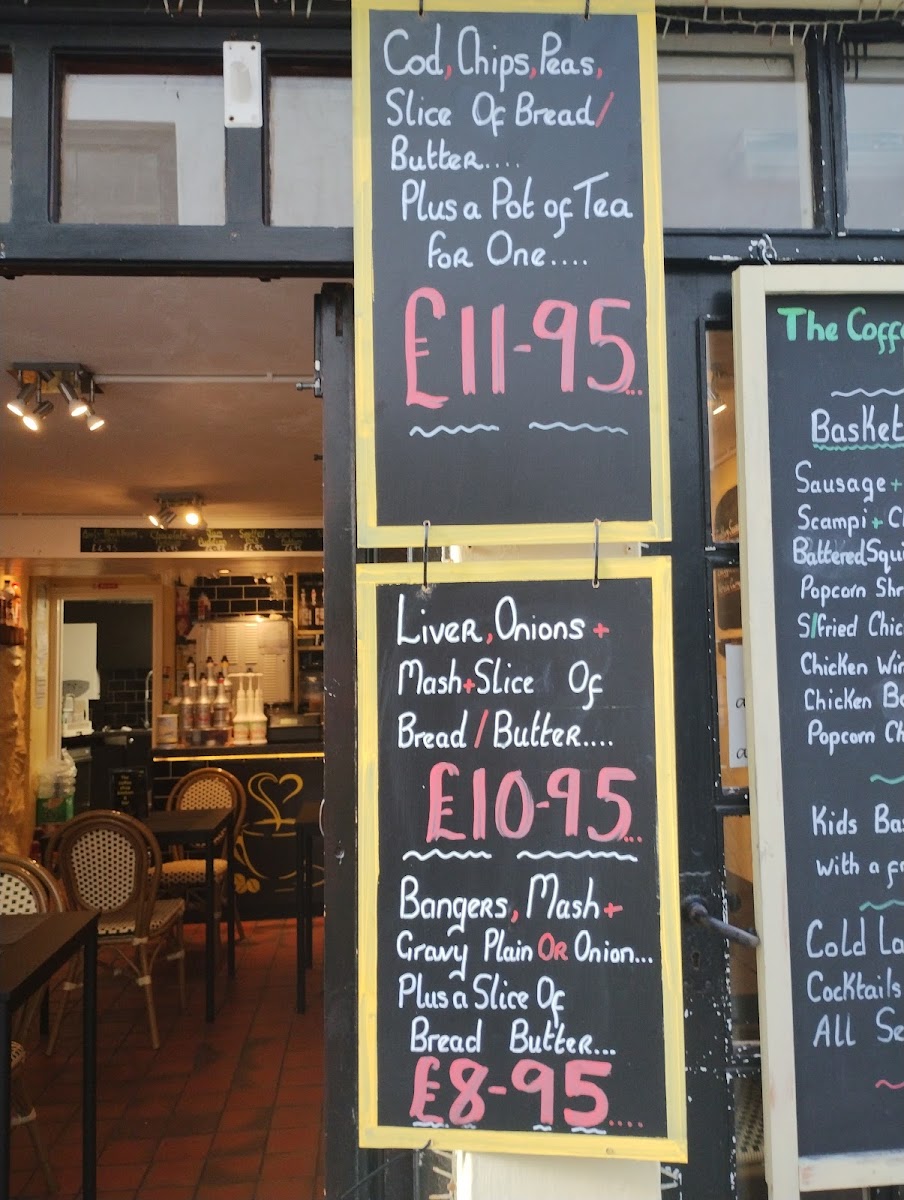 Cod, Chips, Peas,
Slice Of Bread/
Butter....
Plus a Pot of Tea
For One....
£11-95...
Liver, Onions +
Mash + Slice Of
Bread / Butter....
£10-95...
Bangers, Mash +
Gravy Plain OR Onion...
Plus a Slice Of
Bread Butter...
£8-95....
The Coff
Basket
Sausage +
Scampi + C
Battered Squi
Popcorn Shr
S/Fried Chic
Chicken Win
Chicken B
Popcorn Ch
Kids Bas
with a f
Cold La
Cocktails
All Se